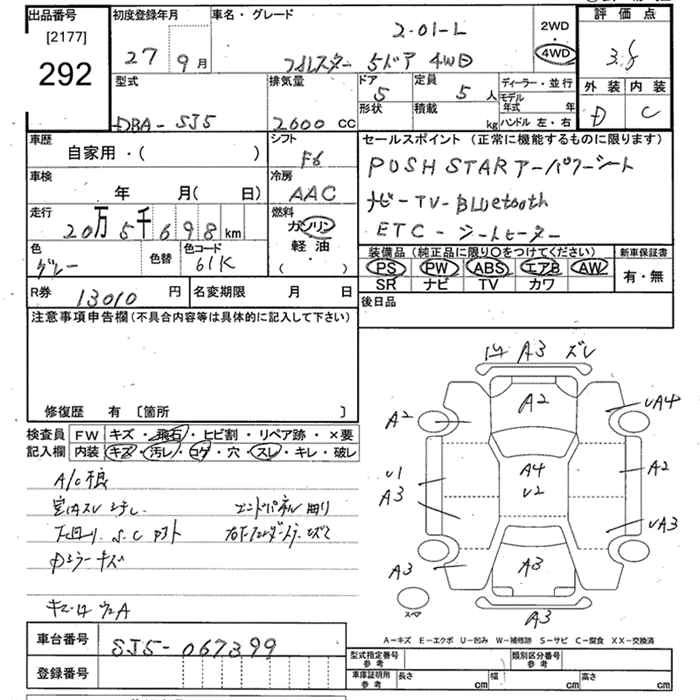 出品番号
[2177]
292
初度登録年月
27年 9月
車名・グレード
2.0i-L
フォレスター 5ドア 4WD
2WD
・
4WD
評価点
3.5
外装 内装
D C
型式
DBA-SJ5
排気量
2000 CC
ドア
5
定員
5 人
形状
積載
kg
ディーラー・並行
モデル年式 年
ハンドル 左・右
車歴
自家用・( )
車検
年 月( 日)
走行
20万5千698km
色
グレー
色替
色コード
61K
シフト
F6
冷房
AAC
燃料
ガソリン
軽油
( ・ )
セールスポイント (正常に機能するものに限ります)
PUSH STAR アーパワーシート
ナビ-TV-Bluetooth
ETC-シートヒーター
装備品(純正品に限り○をつけてください)
PS PW ABS エアB AW
SR ナビ TV カワ
新車保証書
有・無
R券 13010 円
名変期限 月 日
後日品
注意事項申告欄(不具合内容等は具体的に記入して下さい)
修復歴 有 [箇所 ]
検査員
記入欄
FW キズ・飛石・ヒビ割・リペア跡・×要
内装 キズ・汚レ・コゲ・穴・スレ・キレ・破レ
A/C不良
室内スレ
エンドパネル曲り
下回り S.C
キズ
A3 ズレ
A2
A2
UA4
U1
A3
A4
U2
A2
UA3
A3
A3
スペア
A3
A-キズ E-エクボ U-凹み W-補修跡 S-サビ C-腐食 XX-交換済
車台番号
SJ5-067399
登録番号
型式指定番号
参考
類別区分番号
参考
車庫証明用
参考
長さ cm 幅 cm 高さ cm